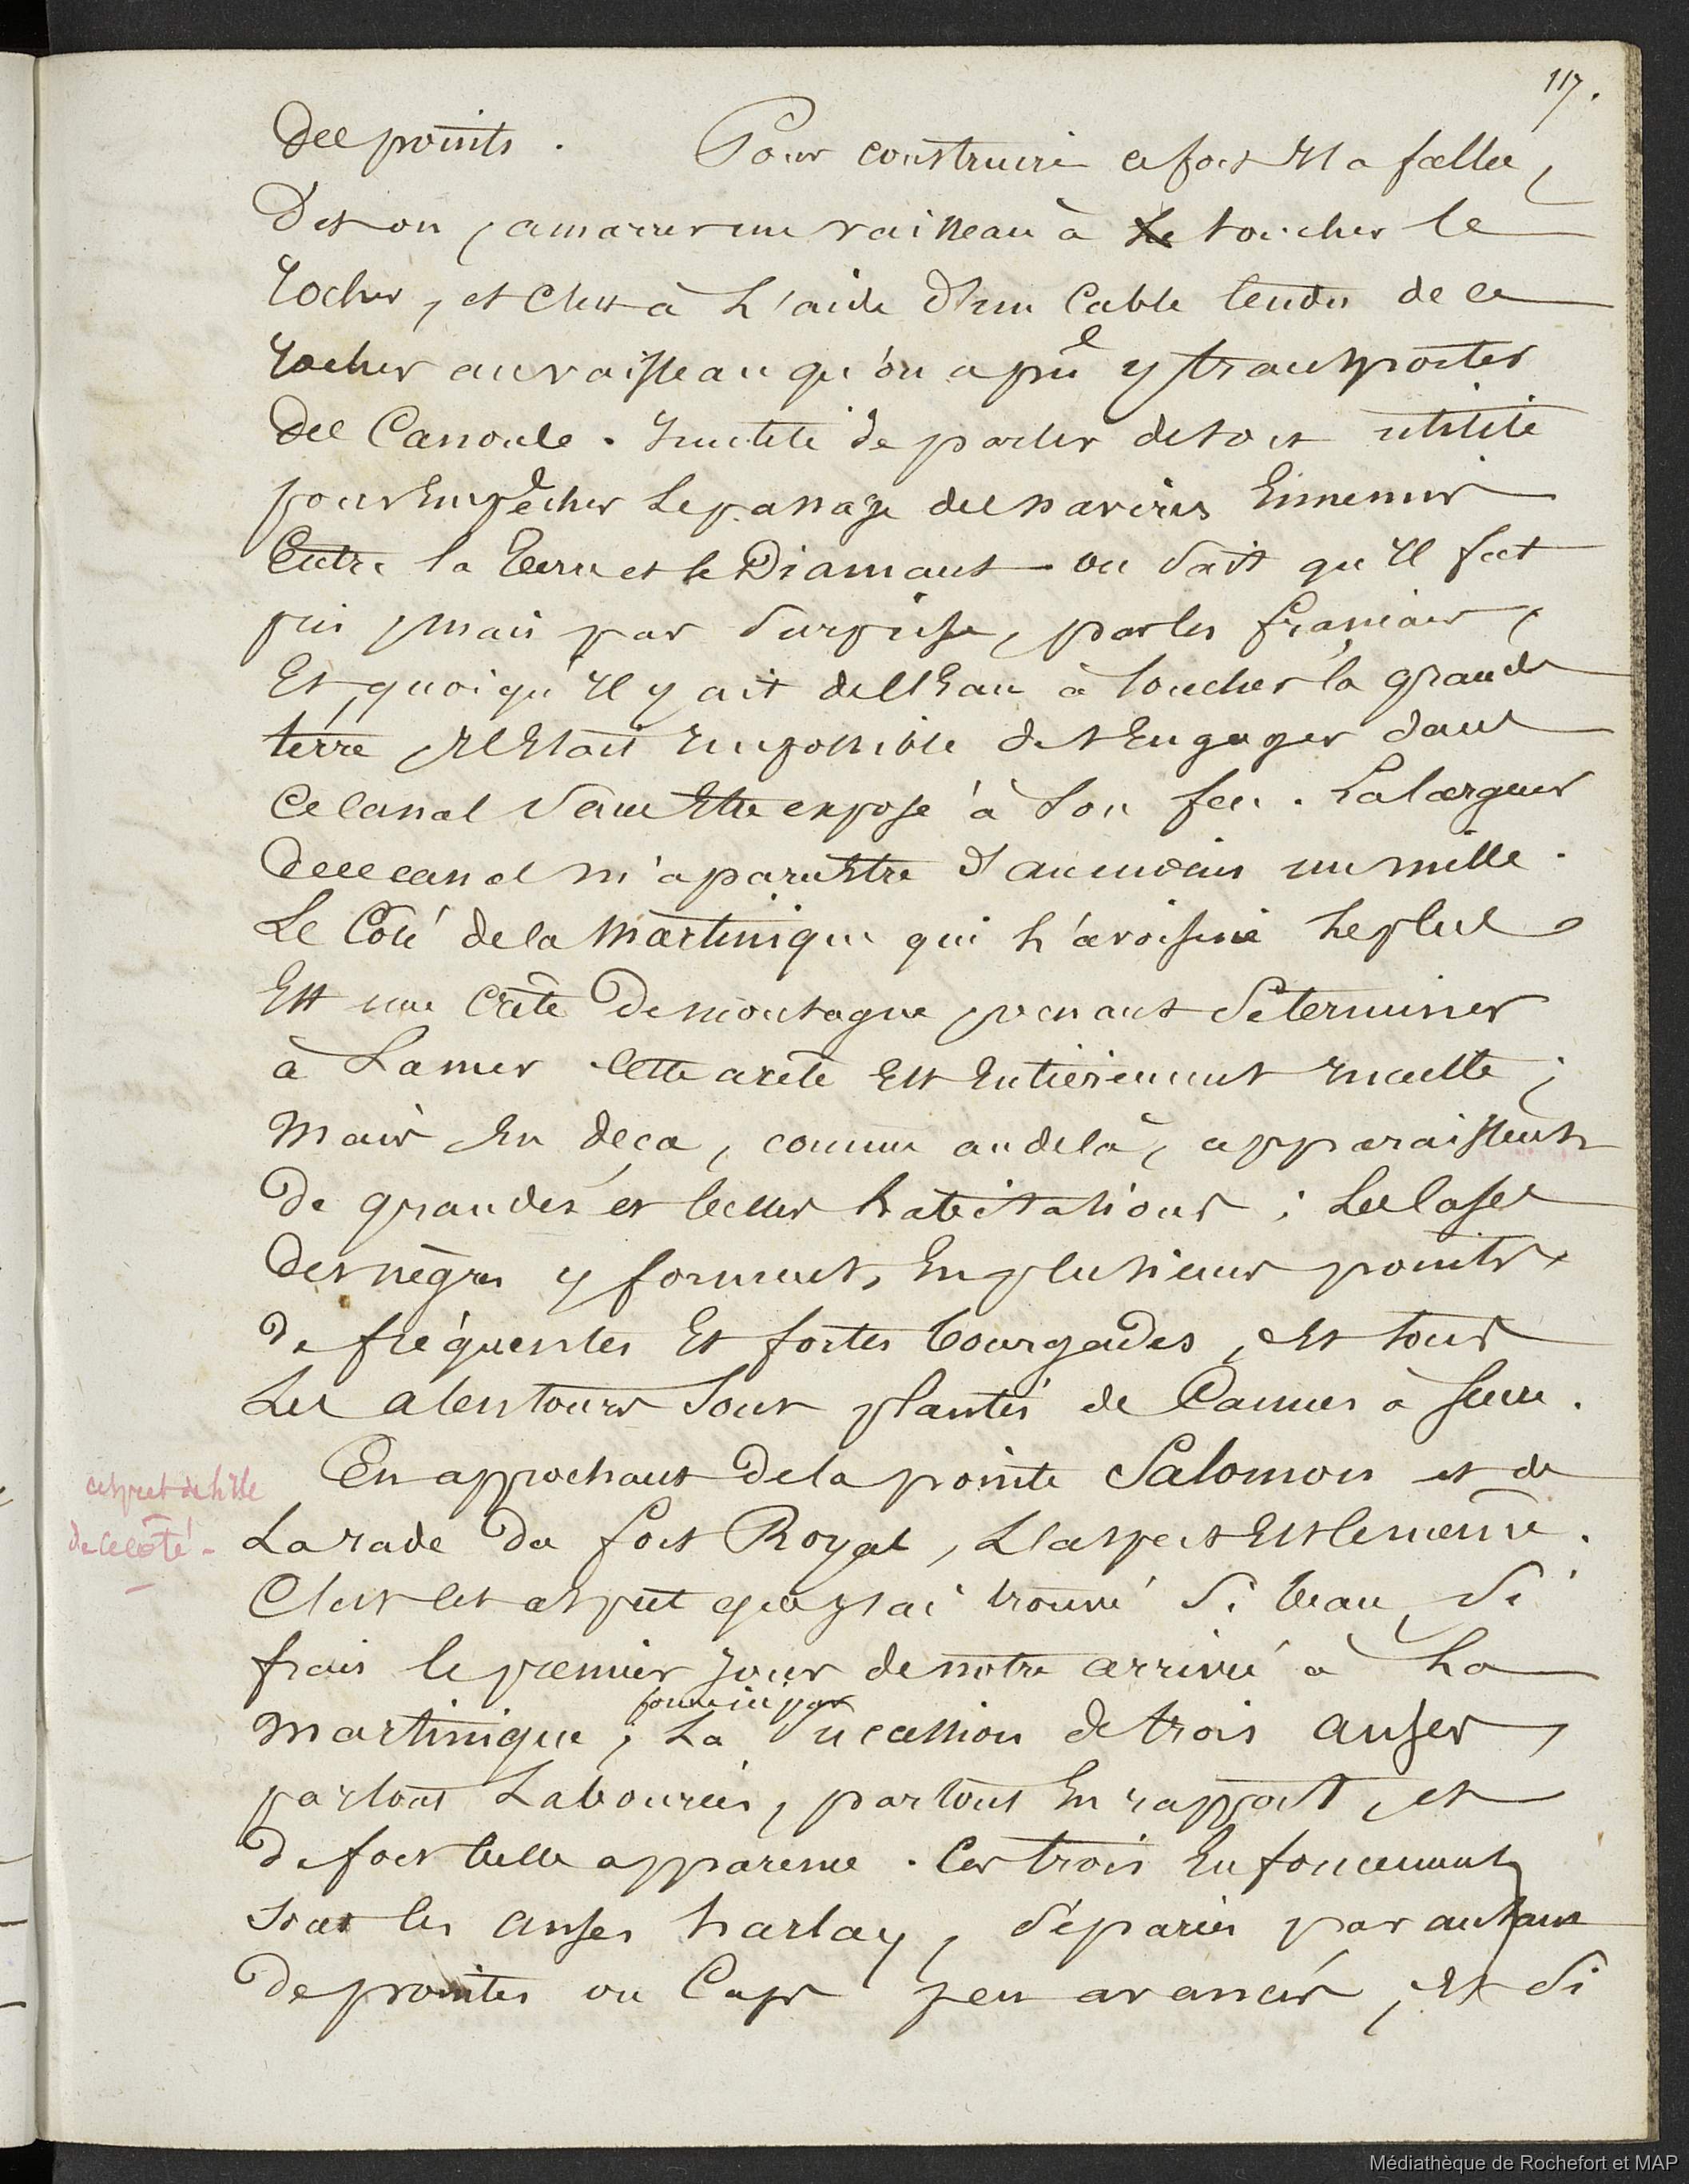 117.
des points. Pour construire ce fort il a fallu,
dit on, amarrer un vaisseau à toucher le
rocher, et c'est à l'aide d'un cable tendu de ce
rocher au vaisseau qu'on a pu y transporter
des canons. Inutile de parler de son utilité
pour empêcher le passage des navires ennemis
entre la terre et le Diamant. on sait qu'il fut
pris, mais par surprise, par les français,
et, quoiqu'il y ait de l'eau à toucher la grande
terre, il était impossible de s'engager dans
ce canal sans être exposé à son feu. La largeur
de ce canal m'a paru être d'au moins un mille.
Le côté de la Martinique qui l'avoisine le plus
est une crête de montagne, venant se terminer
à la mer. Cette arête est entièrement inculte;
mais en deça, comme au delà, apparaissent
de grandes et belles habitations; les cases
des nègres y forment, en plusieurs points,
de fréquentes et fortes bourgades, et tous
les alentours sont plantés de cannes à sucre.
En approchant de la pointe Salomon et de
la rade du fort Royal, l'aspect est le même.
aspect de l'île
de ce côté.
C'est cet aspect que j'ai trouvé si beau, si
frais le premier jour de notre arrivée à la
formée par
Martinique, la succession de trois anses,
partout labourées, partout en rapport, et
de fort belle apparence. Ces trois enfoncements
sont les anses d'arlay, séparées par autant
de pointes ou caps peu avancés, et si
Médiathèque de Rochefort et MAP